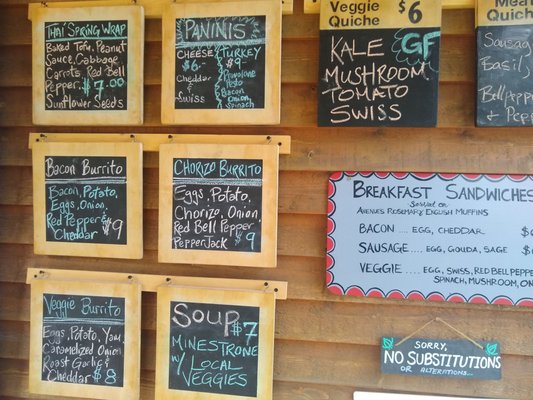 Thai Spring Wrap
Baked Tofu, Peanut
Sauce, Cabbage
Carrots, Red Bell
Pepper, $7.00
Sunflower Seeds
PANINIS
CHEESE
$6.
Cheddar
Swiss
TURKEY
$9
Provolone
Pesto
Bacon
Onion
Spinach
Veggie $6
Quiche
KALE GF
MUSHROOM
TOMATO
SWISS
Meat
Quich
Sausag
Basil,
Bell Pepper
& Pep
Bacon Burrito
Bacon, Potato,
Eggs, Onion,
Red Pepper &
Cheddar $9
Chorizo Burrito
Eggs, Potato,
Chorizo, Onion,
Red Bell Pepper
Pepper Jack 9
BREAKFAST SANDWICHES
Served on
AVENUES ROSEMARY ENGLISH MUFFINS
BACON .... EGG, CHEDDAR $
SAUSAGE .... EGG, GOUDA, SAGE $
VEGGIE .... EGG, SWISS, RED BELL PEPPE
SPINACH, MUSHROOM, ON
Veggie Burrito
Eggs, Potato, Yam,
Caramelized Onion
Roast Garlic &
Cheddar $8
SOUP $7
MINESTRONE
W/ LOCAL
VEGGIES
SORRY,
NO SUBSTITUTIONS
OR ALTERATIONS...